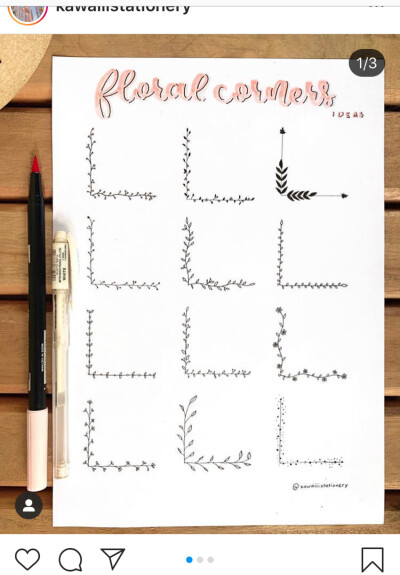 kawaiistationery
1/3
floral corners
IDEAS
@kawaiistationery